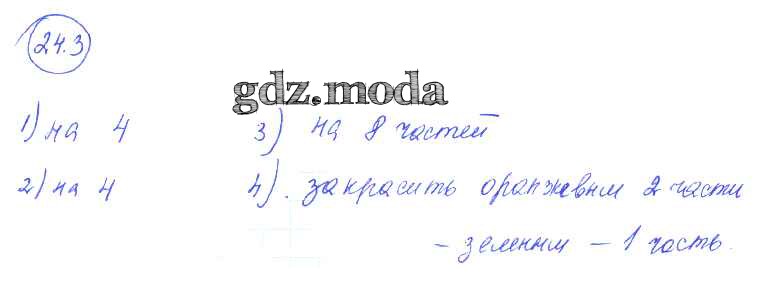 24.3
gdz.moda
1) на 4
2) на 4
3) на 8 частей
4). закрасить оранжевым 2 части
- зеленым - 1 часть.